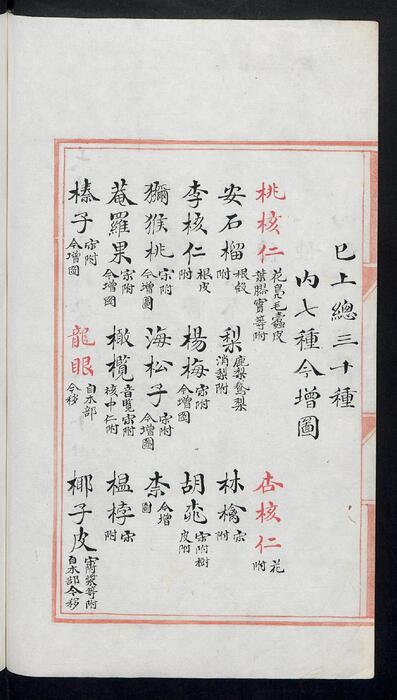 巳上總三十種
內七種今增圖
桃核仁 花梟毛蠹皮葉膠實等附 杏核仁 花附
安石榴 根殻附 梨 鹿梨鵞梨消梨附 林檎 宋附
李核仁 根皮附 楊梅 宋附今增圖 胡桃 宋附樹皮附
獼猴桃 宋附今增圖 海松子 宋附今增圖 柰 今增圖
菴羅果 宋附今增圖 橄欖 音覽宋附核中仁附 榲桲 宋附
榛子 宋附今增圖 龍眼 自木部今移 椰子皮 宋附漿等附自木部今移